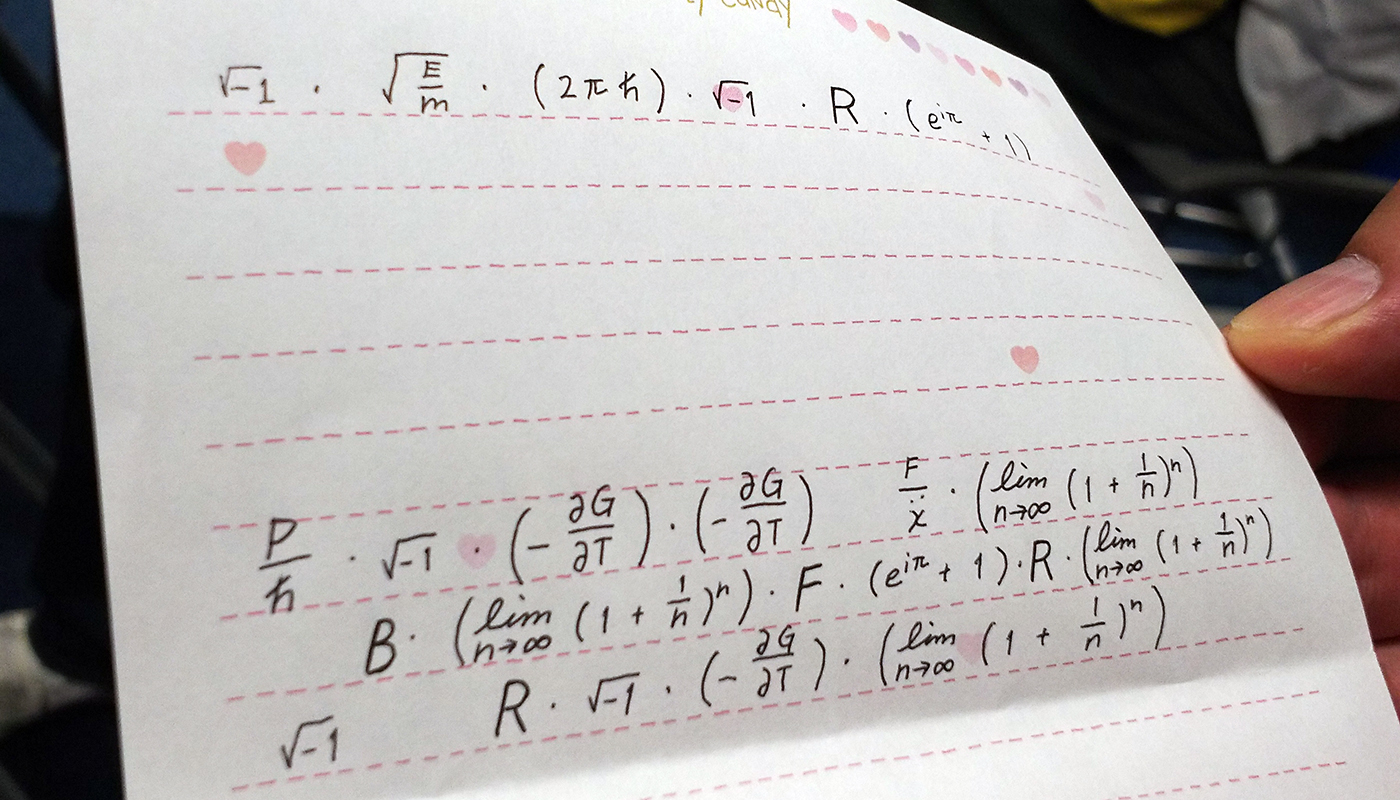 ty Candy
√-1 · √(E/m) · (2πℏ) · √-1 · R · (e^{iπ} + 1)
P/ℏ · √-1 · (- ∂G/∂T) · (- ∂G/∂T) F/ẍ · (lim_{n→∞} (1 + 1/n)^n)
B · (lim_{n→∞} (1 + 1/n)^n) · F · (e^{iπ} + 1) · R · (lim_{n→∞} (1 + 1/n)^n)
√-1 R · √-1 · (- ∂G/∂T) · (lim_{n→∞} (1 + 1/n)^n)